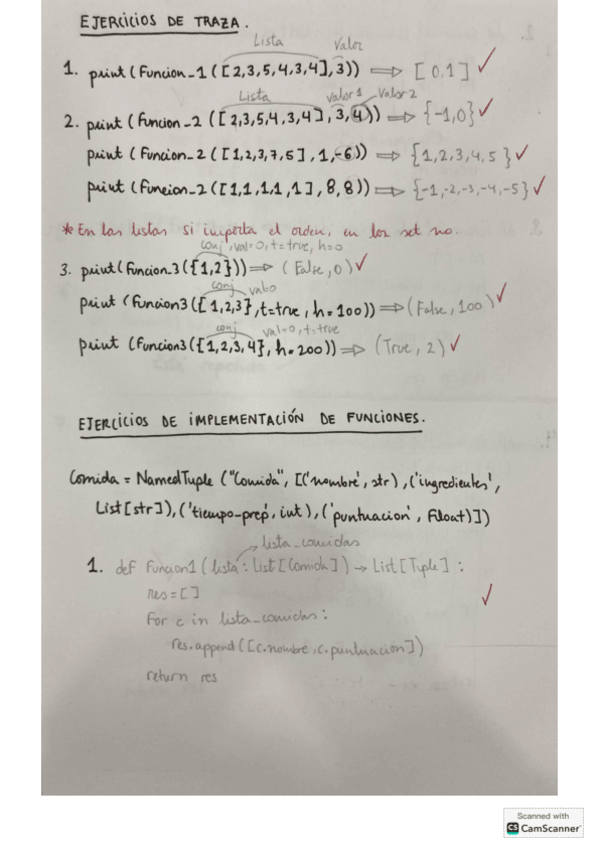 EJERCICIOS DE TRAZA.
Lista Valor
1. print (Funcion_1 ([2,3,5,4,3,4],3)) ⟹ [0,1] ✓
Lista valor1 Valor2
2. print (Funcion_2 ([2,3,5,4,3,4],3,4)) ⟹ {-1,0} ✓
print (Funcion_2 ([1,2,3,7,5],1,-6)) ⟹ {1,2,3,4,5} ✓
print (Funcion_2 ([1,1,1,1,1],8,8)) ⟹ {-1,-2,-3,-4,-5} ✓
* En las listas si importa el orden, en los set no.
conj, val=0, t=true, h=0
3. print(Funcion_3({1,2})) ⟹ (False,0) ✓
conj val=0
print (Funcion3([1,2,3},t=true, h=100)) ⟹ (False,100) ✓
conj val=0, t=true
print (Funcion3({1,2,3,4}, h=200)) ⟹ (True,2) ✓
EJERCICIOS DE IMPLEMENTACIÓN DE FUNCIONES.
Comida = NamedTuple ("Comida", [('nombre', str), ('ingredientes',
List[str]), ('tiempo-prep', int), ('puntuacion', Float)])
lista_comidas
1. def Funcion1 (lista: List[Comida]) → List[Tuple]:
res=[] ✓
For c in lista_comidas:
res.append([c.nombre, c.puntuacion])
return res
Scanned with
CS CamScanner